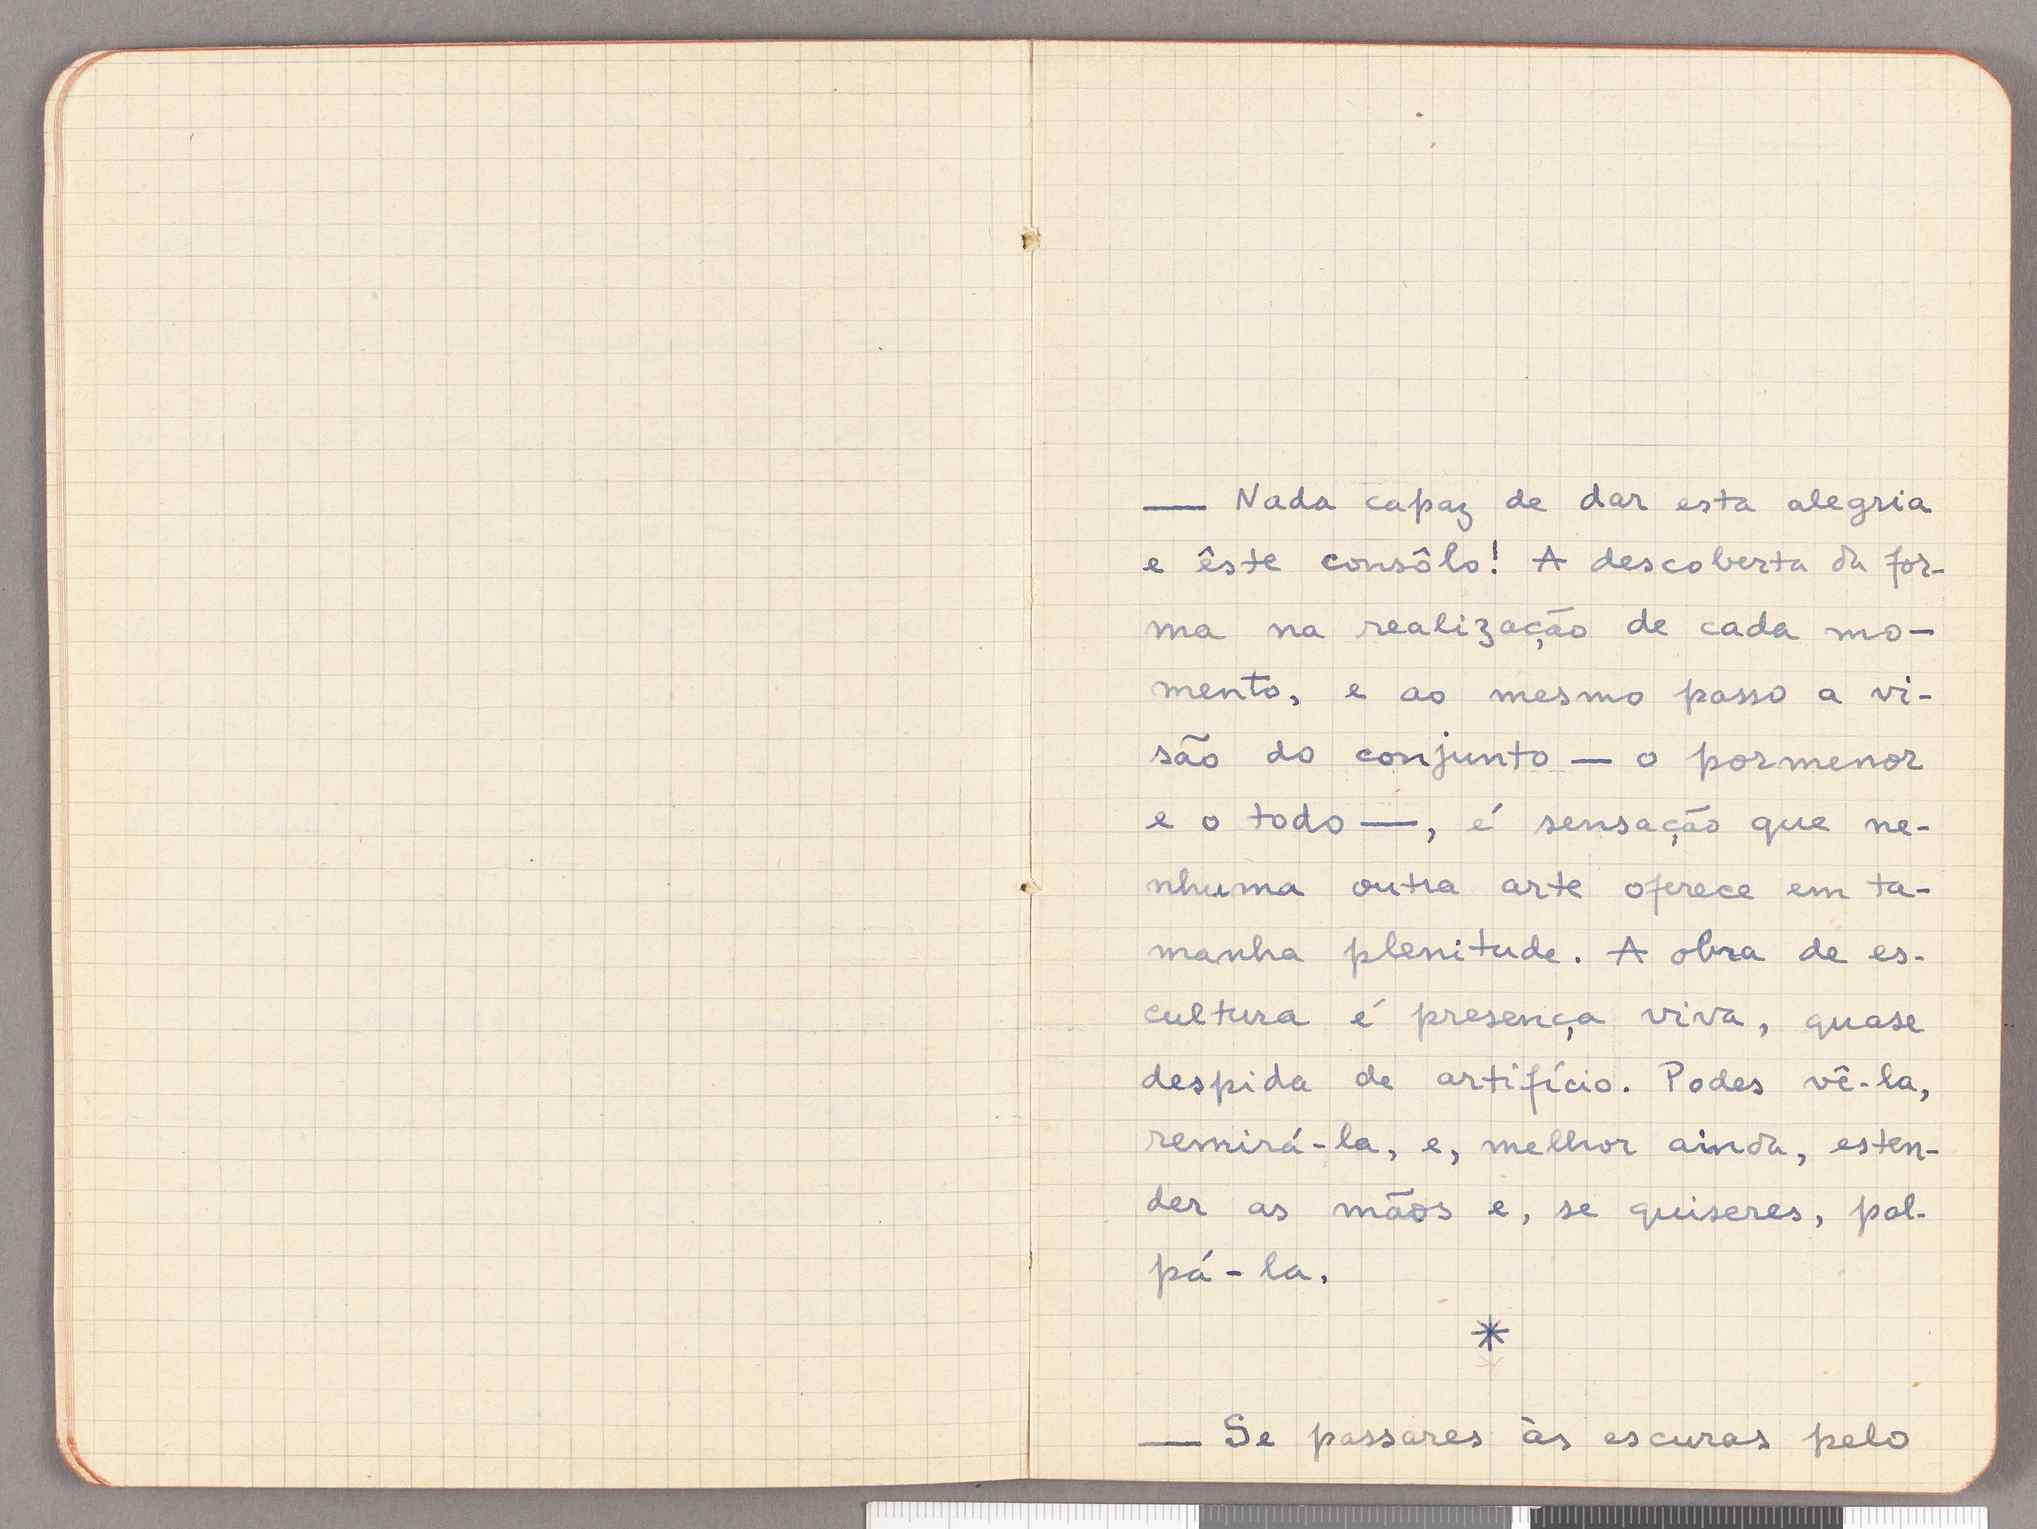 — Nada capaz de dar esta alegria
e êste consôlo! A descoberta da for-
ma na realização de cada mo-
mento, e ao mesmo passo a vi-
são do conjunto — o pormenor
e o todo —, é sensação que ne-
nhuma outra arte oferece em ta-
manha plenitude. A obra de es-
cultura é presença viva, quase
despida de artifício. Podes vê-la,
remirá-la, e, melhor ainda, esten-
der as mãos e, se quiseres, pal-
pá-la.
*
— Se passares às escuras pelo